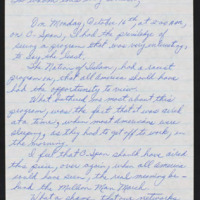 On Monday, October 16th, at 2:00 A.M.,
on C-Span, I had the privilege of
seeing a program that was very interesting,
to say the least.
The Nation of Islam, had a great
program, that all America should have
had the opportunity to view.
What bothered me most about this
program, was the fact that it was aired
at a time when most Americans were
sleeping, as they had to get off to work, in
the morning.
I feel that C-Span should have aired
this piece, over again, when all America
could have seen, the real meaning be-
hind the Million Man March.
What a shame, that our networks